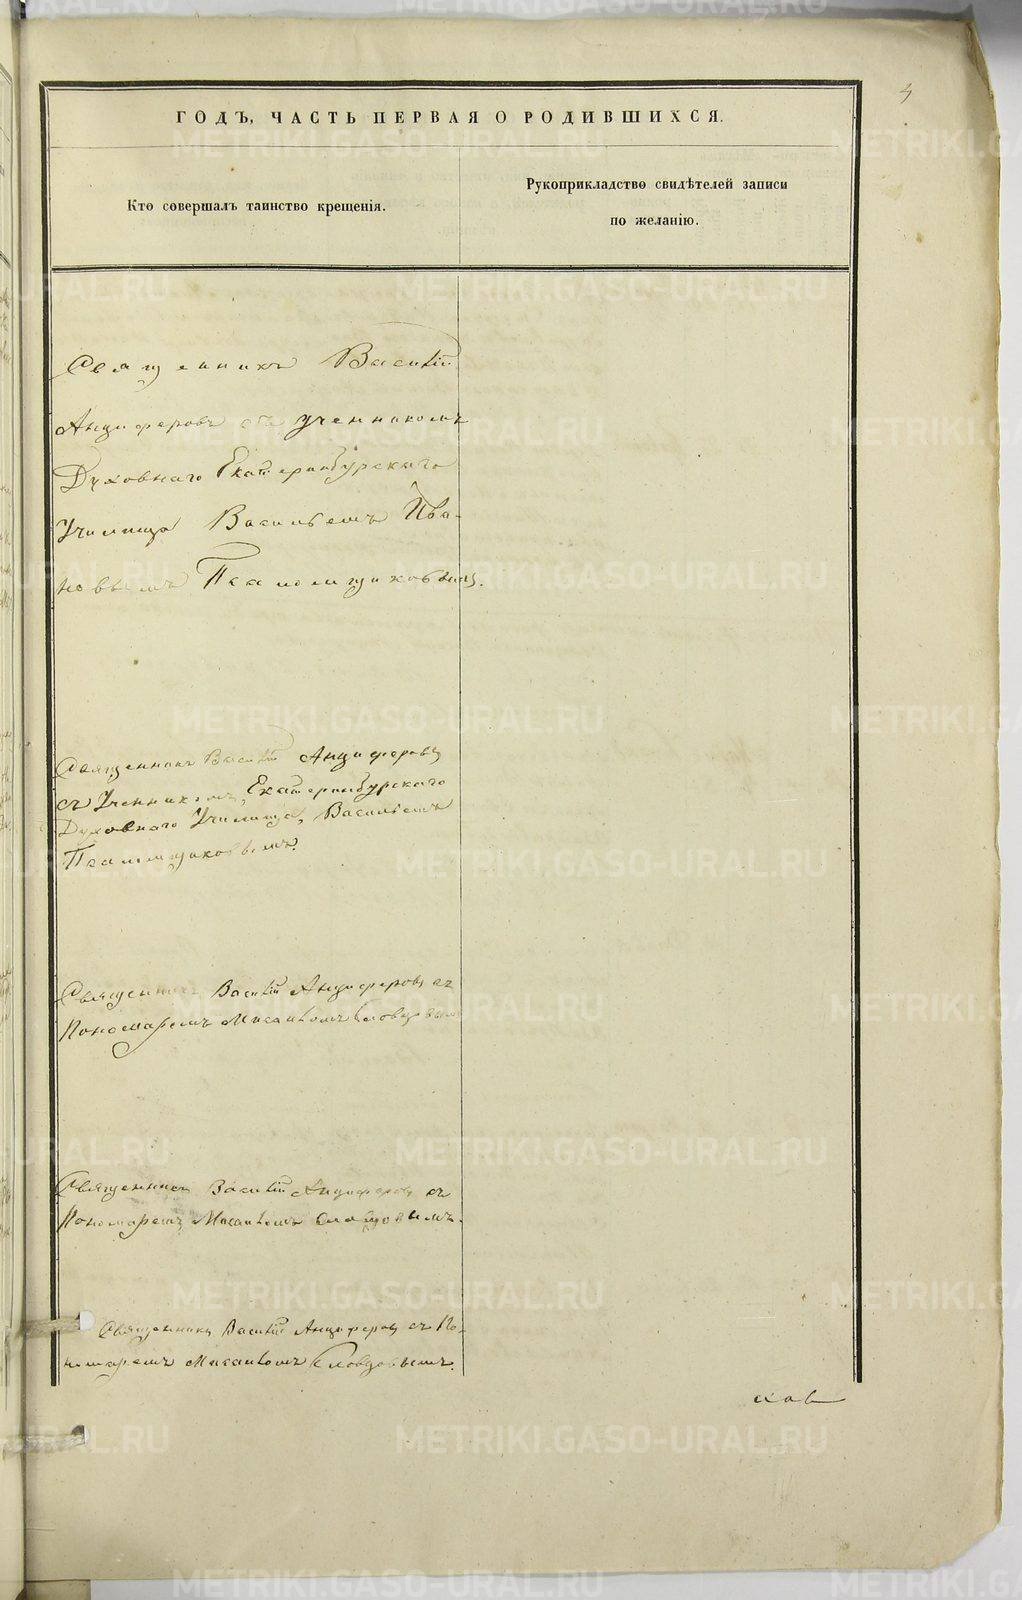 ГОДЪ, ЧАСТЬ ПЕРВАЯ О РОДИВШИХСЯ.
Кто совершалъ таинство крещенія.
Рукоприкладство свидѣтелей записи
по желанію.
Священникъ Василій
Анциферовъ съ ученикомъ
Духовнаго Екатеринбурскаго
Училища Васильемъ Ива-
новымъ
Священникъ Василій Анциферовъ
съ Ученикомъ, Екатеринбурскаго
Духовнаго Училища, Васильемъ
Священникъ Василій Анциферовъ съ
Пономаремъ Словцовымъ
Священникъ Василій Анциферовъ съ
Пономаремъ Словцовымъ.
Священникъ Василій Анциферовъ съ По-
номаремъ Словцовымъ.
METRIKI.GASO-URAL.RU